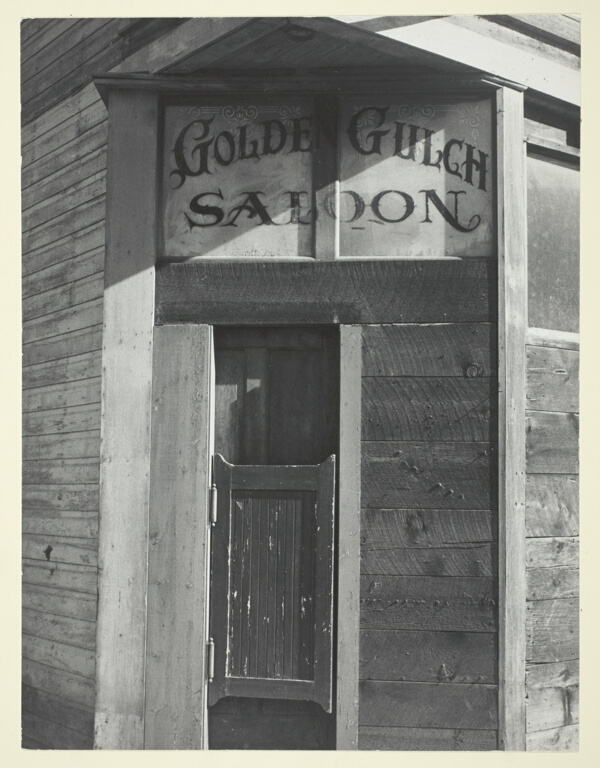 GOLDEN GULCH
SALOON